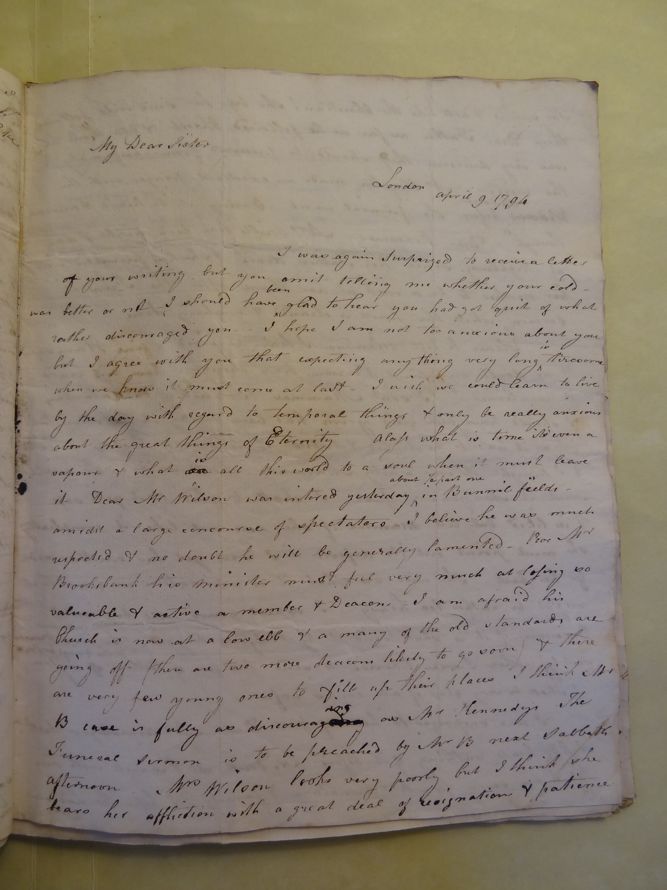 My Dear Sister
London april 9 1794
I was again Surprized to receive a letter
of your writing but you omit telling me whether your cold
was better or not I should have been glad to hear you had got quit of what
rather discouraged you I hope I am not too anxious about you
but I agree with you that expecting anything very long is tiresome
when we know it must come at last - I wish we could learn to live
by the day with regard to temporal things & only be really anxious
about the great things of Eternity Alas what is time even a
vapour & what is all this world to a soul when it must leave
it Dear Mr Wilson was intered yesterday about 1/2 past one in Bunnil fields -
amidst a large concourse of spectators I believe he was much
respected & no doubt he will be generally lamented - Poor Mr
Brooksbank his minister must feel very much at losing so
valueable & active a member & Deacon - I am afraid his
Church is now at a low ebb & a many of the old standards are
going off (there are two more deacons likely to go soon) & there
are very few young ones to fill up their places I think Mr
B case is fully as discouraging as Mr Kennedys The
Funeral sermon is to be preached by Mr B next Sabbath
afternoon Mrs Wilson looks very poorly but I think she
bears her affliction with a great deal of resignation & patience